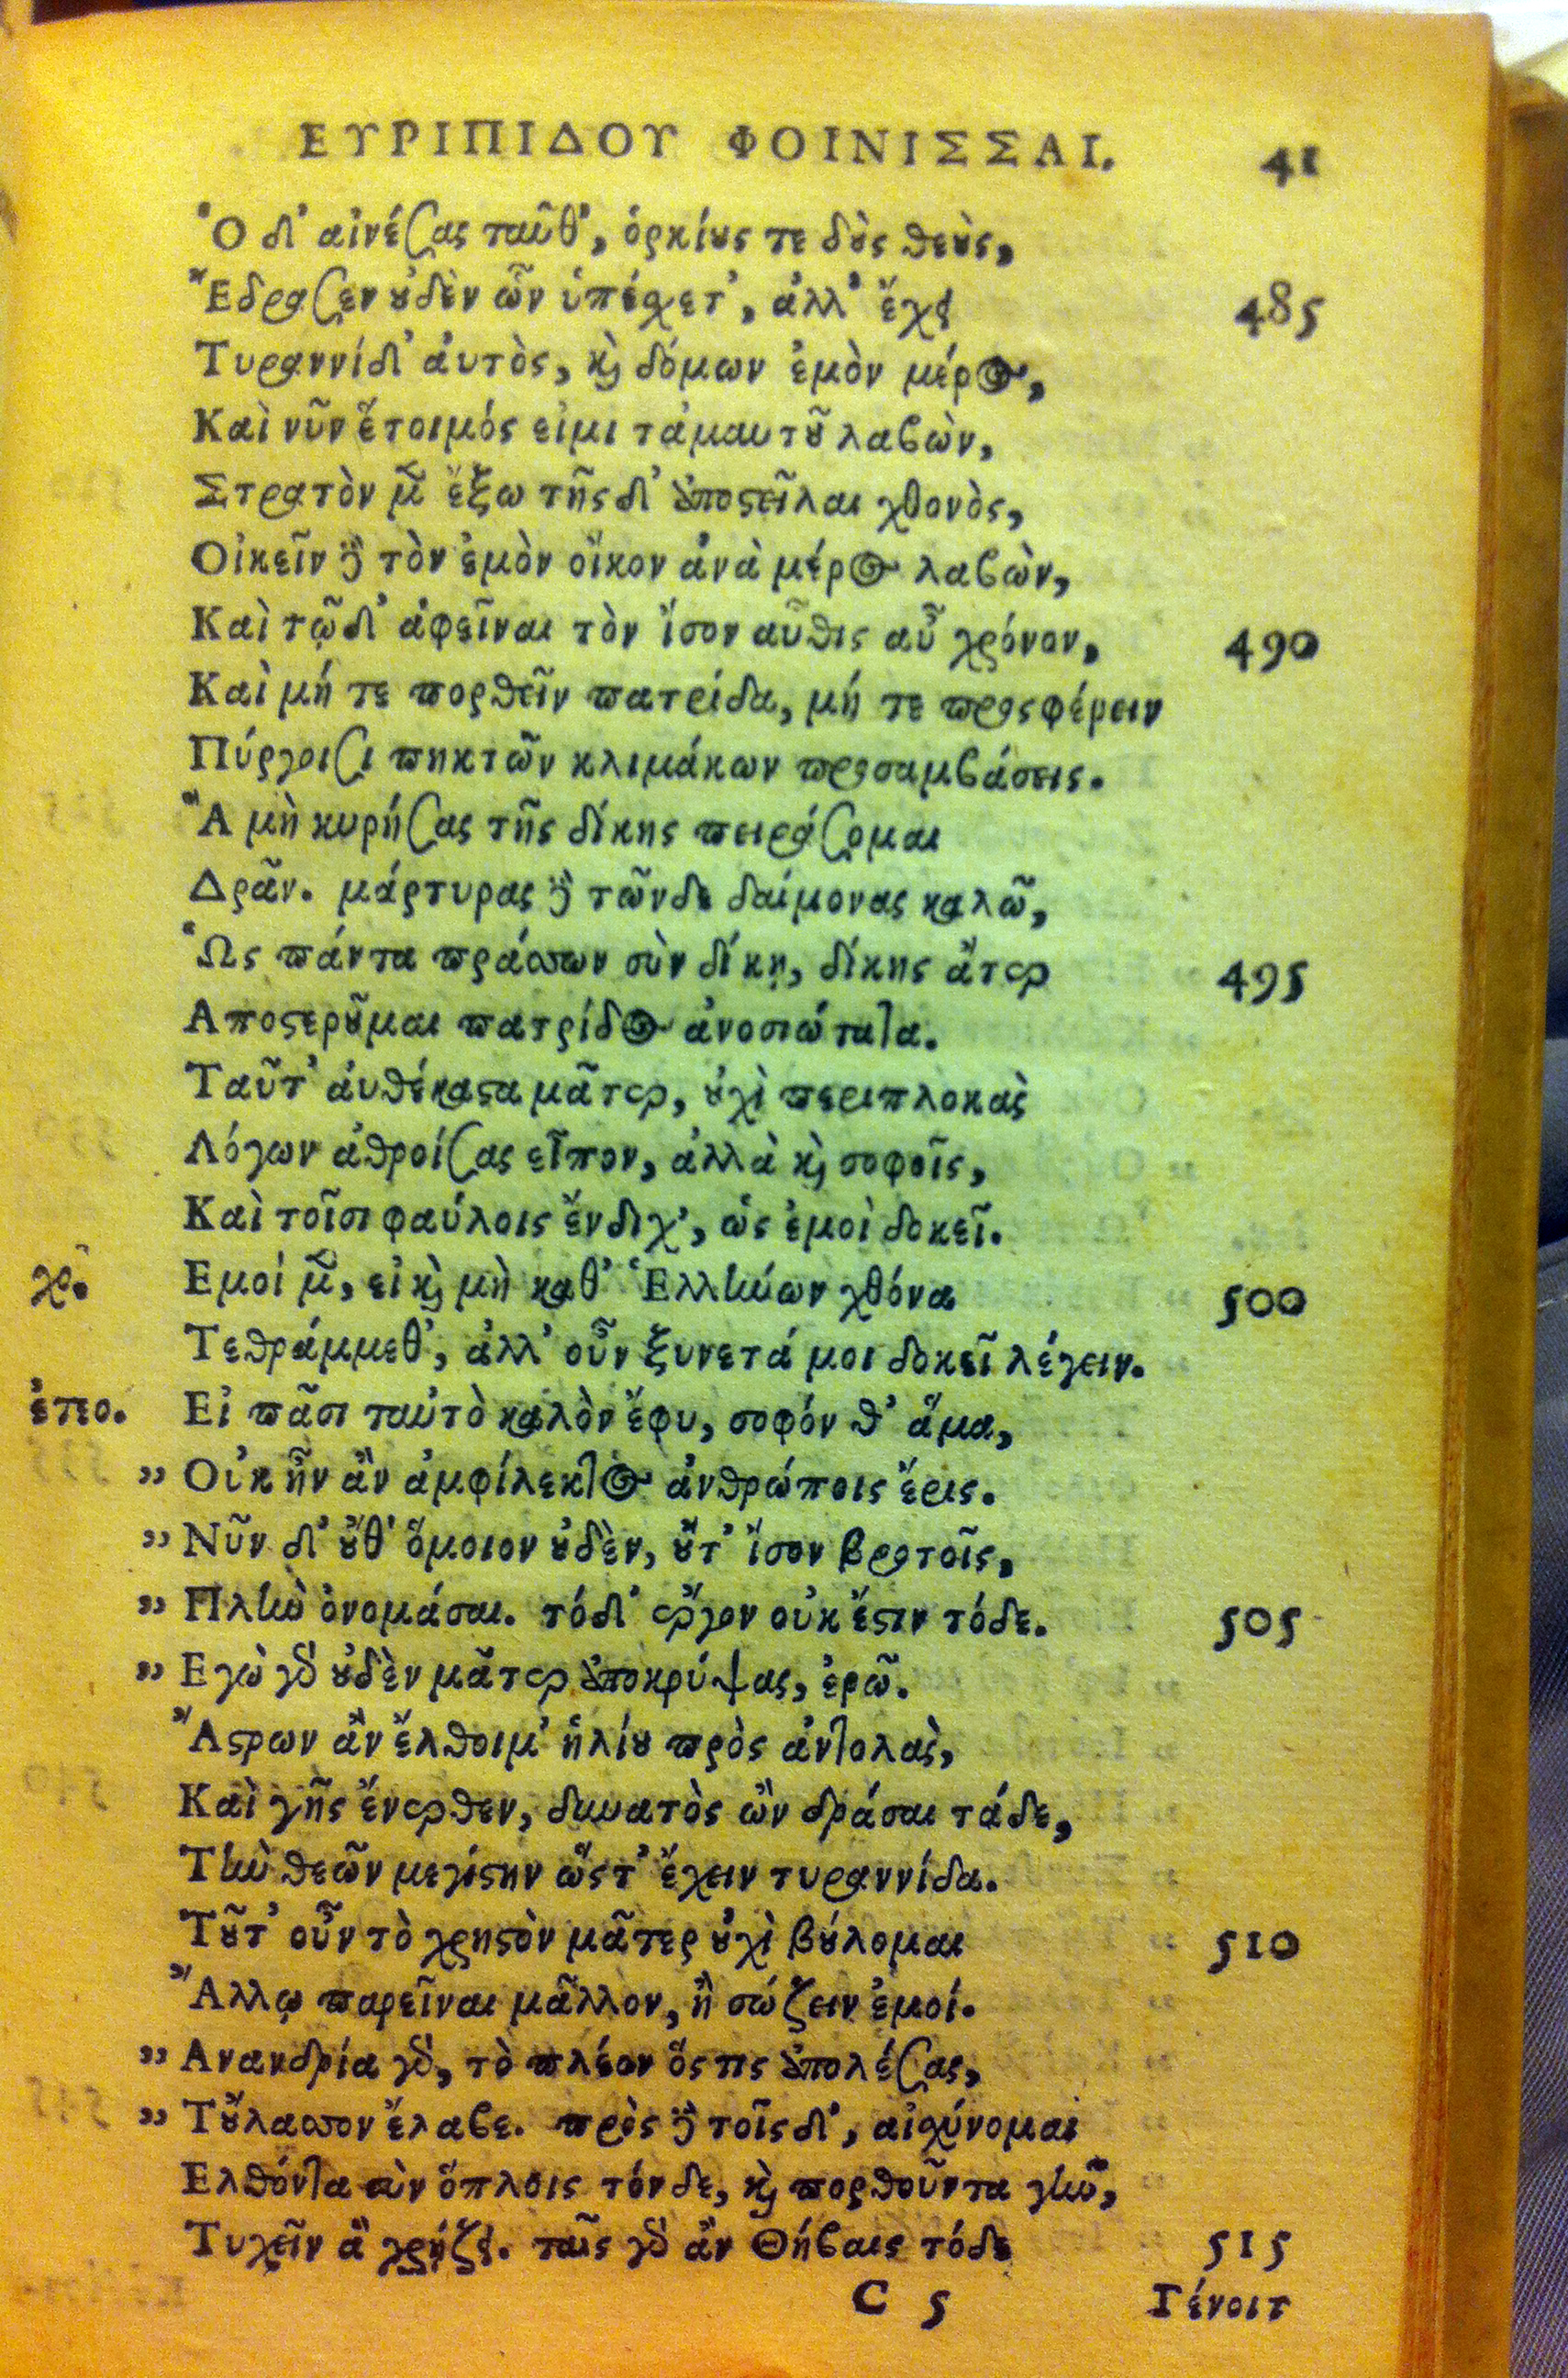 ΕΥΡΙΠΙΔΟΥ ΦΟΙΝΙΣΣΑΙ. 41
Ὁ δ' αἰνέσας ταῦθ', ὁρκίȣς τε δȣ̀ς θεȣ̀ς,
Ἔδρασεν ȣ̓δὲν ὧν ὑπέσχετ', ἀλλ' ἔχει 485
Τυραννίδ' ἀυτὸς, ϗ δόμων ἐμὸν μέρος,
Καὶ νῦν ἕτοιμός εἰμι τἀμαυτȣ͂ λαβὼν,
Στρατὸν μὲν ἔξω τῆς δ' ἀποϛεῖλαι χθονὸς,
Οἰκεῖν δὲ τὸν ἐμὸν οἶκον ἀνὰ μέρος λαβὼν,
Καὶ τῷδ' ἀφεῖναι τὸν ἴσον αὖθις αὖ χρόνον, 490
Καὶ μή τε πορθεῖν πατρίδα, μή τε προςφέρειν
Πύργοισι πηκτῶν κλιμάκων προσαμβάσεις.
Ἃ μὴ κυρήσας τῆς δίκης πειράσομαι
Δρᾶν. μάρτυρας δὲ τῶνδε δαίμονας καλῶ,
Ὡς πάντα πράσσων σὺν δίκῃ, δίκης ἄτερ 495
Αποϛερȣ͂μαι πατρίδος ἀνοσιώτατα.
Ταῦτ' ἀυθέκαϛα μᾶτερ, ȣ̓χὶ περιπλοκὰς
Λόγων ἀθροίσας εἶπον, ἀλλὰ ϗ σοφοῖς,
Καὶ τοῖσι φαύλοις ἔνδιχ', ὡς ἐμοὶ δοκεῖ.
χο. Εμοί μὲν, εἰ ϗ μὴ καθ' Ἑλλήνων χθόνα 500
Τεθράμμεθ', ἀλλ' οὖν ξυνετά μοι δοκεῖ λέγειν.
ἐτεο. Εἰ πᾶσι ταὐτὸ καλὸν ἔφυ, σοφόν θ' ἅμα,
„ Οὐκ ἦν ἂν ἀμφίλεκτος ἀνθρώποις ἔρις.
„ Νῦν δ' ȣ̓́θ' ὅμοιον ȣ̓δὲν, ȣ̓́τ' ἴσον βροτοῖς,
„ Πλὴν ὀνομάσαι. τόδ' ἔργον οὐκ ἔϛιν τόδε. 505
„ Εγὼ γὰρ ȣ̓δὲν μᾶτερ ἀποκρύψας, ἐρῶ.
Ἄϛρων ἂν ἔλθοιμ' ἡλίȣ πρὸς ἀντολὰς,
Καὶ γῆς ἔνερθεν, δυνατὸς ὢν δράσαι τάδε,
Τὴν θεῶν μεγίϛην ὥςτ' ἔχειν τυραννίδα.
Τȣ͂τ' οὖν τὸ χρηϛὸν μᾶτερ ȣ̓χὶ βȣ́λομαι 510
Ἄλλῳ παρεῖναι μᾶλλον, ἢ σώζειν ἐμοί.
„ Ανανδρία γὰρ, τὸ πλέον ὅς τις ἀπολέσας,
„ Τȣ̓́λασσον ἔλαβε. πρὸς δὲ τοῖς δ', αἰσχύνομαι
Ελθόντα σὺν ὅπλοις τόνδε, ϗ πορθοῦντα γῆν,
Τυχεῖν ἃ χρῄζει. ταῖς γὰρ ἂν Θήβαις τόδε 515
C 5 Γένοιτ